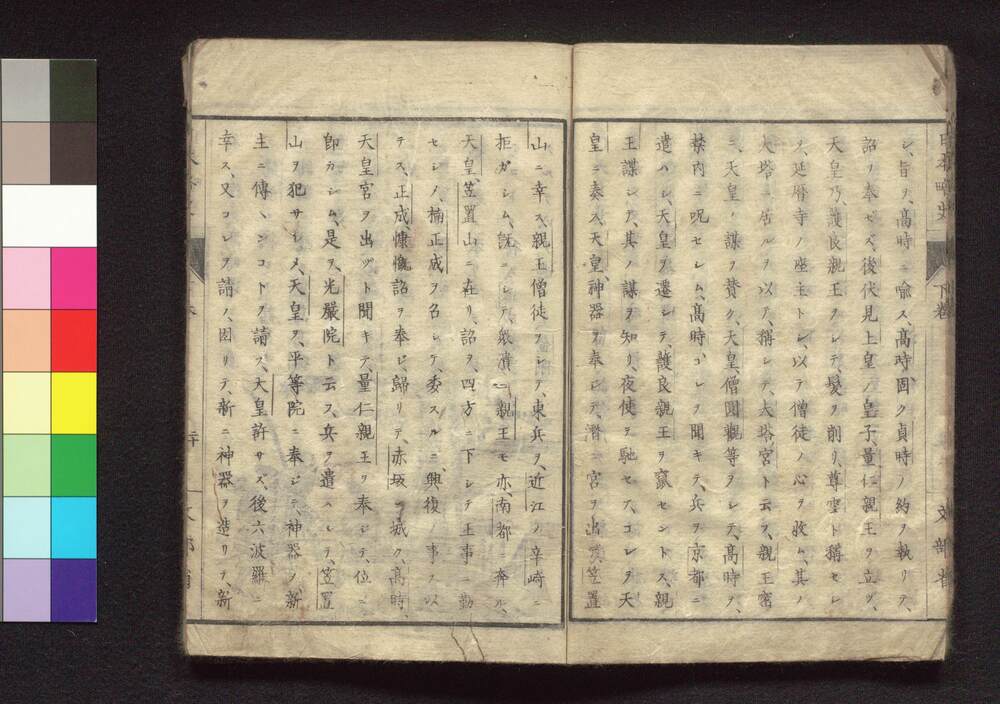 シ、旨ヲ、高時ニ喩ス、高時固ク貞時ノ約ヲ執リテ、
詔ヲ奉ゼズ、後伏見上皇ノ皇子、量仁親王ヲ立ツ、
天皇乃、護良親王ヲシテ、髪ヲ削リ、尊雲ト稱セシ
メ、延暦寺ノ座主トシ、以テ僧徒ノ心ヲ收ム、其ノ
大塔ニ居ルヲ以テ、稱シテ、大塔宮ト云フ、親王密
ニ、天皇ノ謀ヲ賛ク、天皇、僧圓觀等ヲシテ、高時ヲ、
禁内ニ呪セシム、高時コレヲ聞キテ、兵ヲ京都ニ
遣ハシ、天皇ヲ遷シテ、護良親王ヲ竄セントス、親
王謀シテ、其ノ謀ヲ知リ、夜使ヲ馳セテ、コレヲ天
皇ニ奏ス、天皇、神器ヲ奉ジテ、潛ニ宮ヲ出デ、笠置
山ニ幸ス、親王僧徒ヲシテ、東兵ヲ、近江ノ辛崎ニ
拒ガシム、既ニシテ、衆潰ユ、親王モ亦、南都ニ奔ル、
天皇、笠置山ニ在リ、詔ヲ、四方ニ下シテ、王事ニ勤
セシム、楠正成ヲ召シテ、委スルニ、興復ノ事ヲ以
テス、正成、慷慨詔ヲ奉ジ、歸リテ、赤坂ニ城ク、高時、
天皇宮ヲ出ヅト聞キテ、量仁親王ヲ奉ジテ、位ニ
即カシム、是ヲ、光嚴院ト云フ、兵ヲ遣ハシテ、笠置
山ヲ犯サシメ、天皇ヲ、平等院ニ奉ジテ、神器ヲ、新
主ニ傳ヘンコトヲ請フ、天皇許サズ、後六波羅ニ
幸ス、又コレヲ請フ、因リテ、新ニ神器ヲ造リテ、新
日本略史
下卷
文部省
二十
文部省